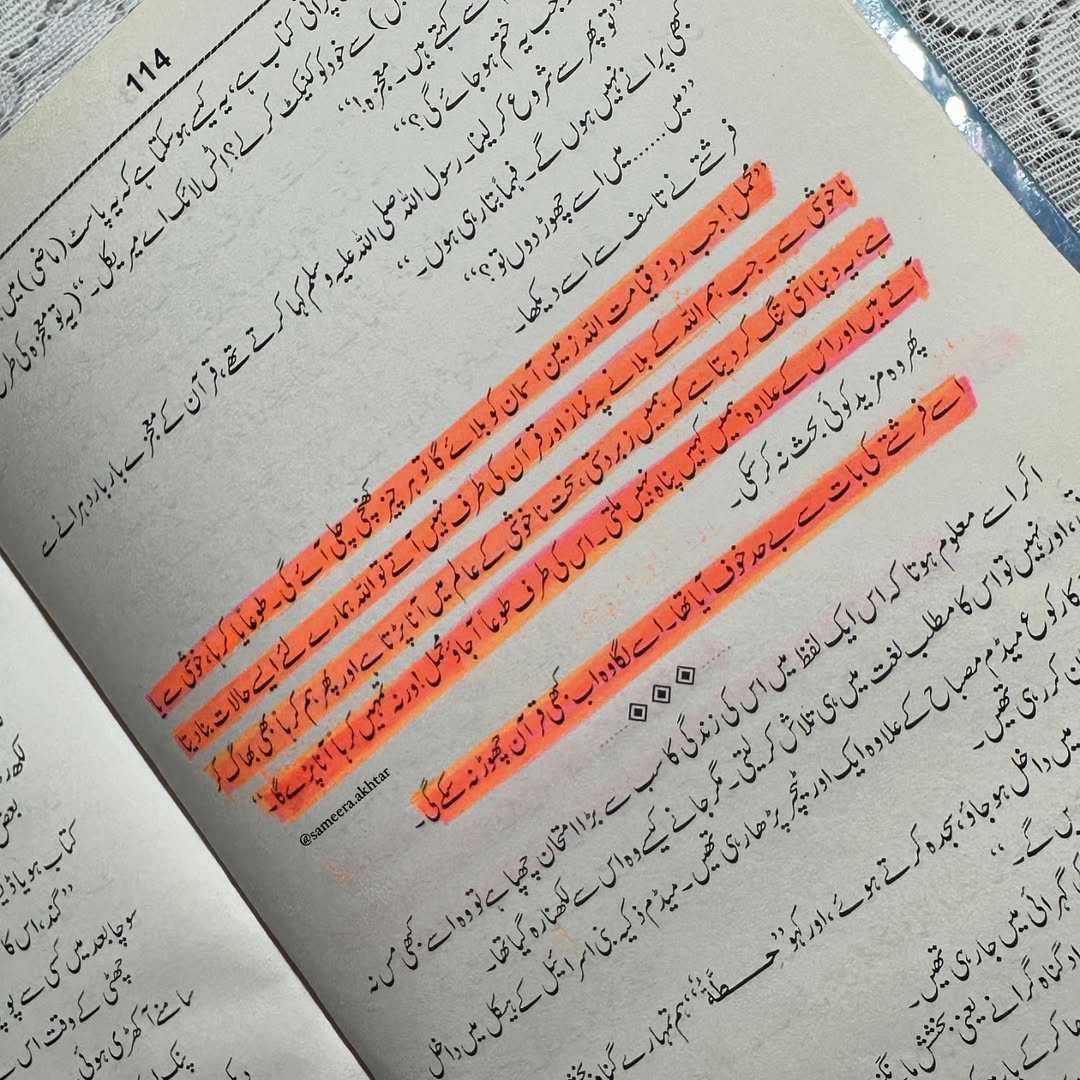 114
پرانی کتاب ہے، یہ کیسے ہو سکتا ہے کہ یہ پاسٹ (ماضی) میں
سے خود کو کنیکٹ کر لے؟ اٹس لائک اے میریکل۔“ (یہ تو معجزہ کی طرح
کہتے ہیں۔ معجزہ!“
جب یہ ختم ہو جائے گی؟“
”تو پھر سے شروع کر لینا۔ رسول اللہ صلی اللہ علیہ وسلم کہا کرتے تھے، قرآن کے معجزے بار بار دہرانے سے
کبھی پرانے نہیں ہوں گے۔ فہماً بتا رہی ہوں۔“
”میں....... میں اسے چھوڑ دوں تو؟“
فرشتے نے تاسف سے اسے دیکھا۔
”محمل! جب روز قیامت اللہ زمین آسمان کو بلائے گا تو ہر چیز کھنچی چلی آئے گی۔ طوعاً یا کرہاً، خوشی سے یا
ناخوشی سے۔ جب ہم اللہ کے بلانے پہ نماز اور قرآن کی طرف نہیں آتے تو اللہ ہمارے لئے ایسے حالات بنا دیتا
ہے، یہ دنیا اتنی تنگ کر دیتا ہے کہ ہمیں زبردستی، سخت ناخوشی کے عالم میں آنا پڑتا ہے اور پھر ہم کرہاً بھی بھاگ کر
آتے ہیں اور اس کے علاوہ ہمیں کہیں پناہ نہیں ملتی۔ اس کی طرف طوعاً آ جاؤ محمل! ورنہ تمہیں کرہاً آنا پڑے گا۔“
پھر وہ مزید کوئی بحث نہ کر سکی۔
اسے فرشتے کی بات سے بے حد خوف آیا تھا۔ اسے لگا وہ اب کبھی قرآن چھوڑ نہ سکے گی۔
@sameera.akhtar
اگر اسے معلوم ہوتا کہ اس ایک لفظ میں اس کی زندگی کا سب سے بڑا امتحان چھپا ہے تو وہ اسے کبھی مس نہ
اور نہیں تو اس کا مطلب لغت میں ہی تلاش کر لیتی۔ مگر جانے کیسے وہ اس سے لکھنا رہ گیا تھا۔
میڈم مصباح کے علاوہ ایک اور ٹیچر پڑھا رہی تھیں۔ میڈم ذکیہ بنی اسرائیل کے ہیکل میں داخل
کر رہی تھیں۔
میں داخل ہو جاؤ، سجدہ کرتے ہوئے، اور کہو ”حطۃ“، ہم تمہارے گناہ
گے۔“
گہرائی میں جا رہی تھیں۔
گناہ گرانے یعنی بخشش
کتاب ہو یا
”گند، اس کا
سوچا بعد میں کسی سے
چھٹی کے وقت اس
سامنے آ کھڑی ہوئی